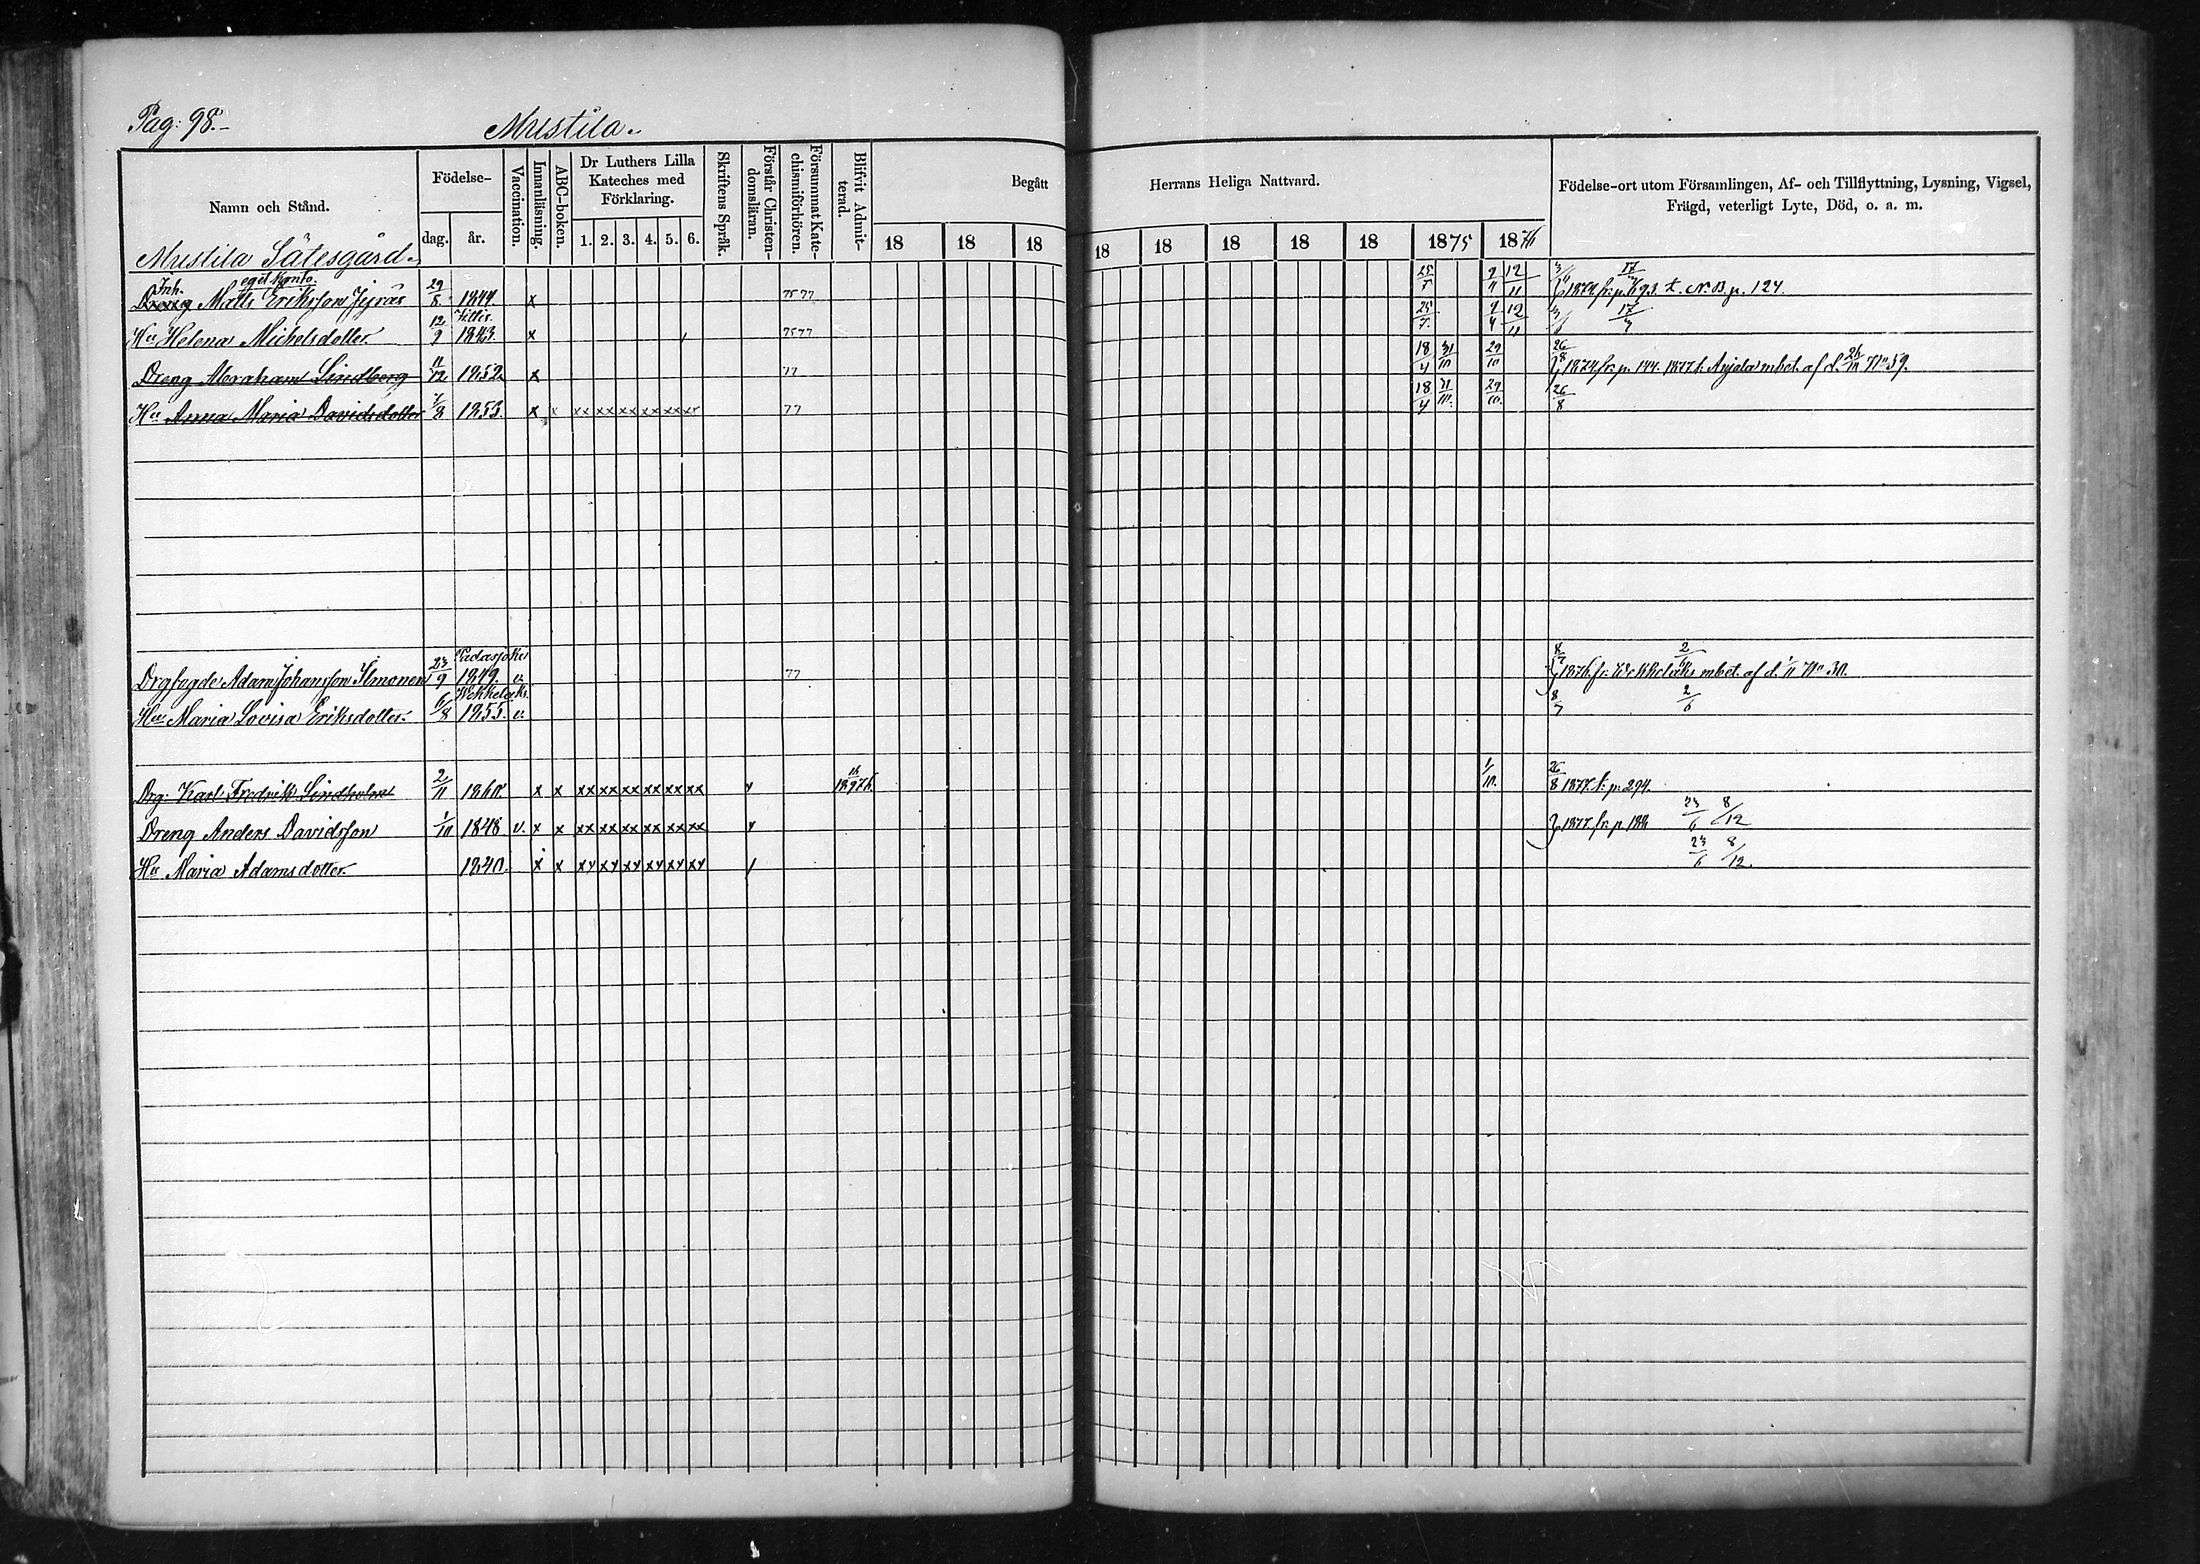 Pag: 98.-
Mustila.
Namn och Stånd.
Födelse-
dag.
år.
Vaccination.
Innanläsning.
ABC-boken.
Dr Luthers Lilla Kateches med Förklaring.
1. 2. 3. 4. 5. 6.
Skriftens Språk.
Förstår Christendomsläran.
Försummat Katechismiförhören.
Blifvit Admitterad.
Begått
Herrans Heliga Nattvard.
18 18 18 18 18 18 18 18 1875 1876
Födelse-ort utom Församlingen, Af- och Tillflyttning, Lysning, Vigsel, Frägd, veterligt Lyte, Död, o. a. m.
Mustila Sätesgård.
Inh. eget konto.
Dreng Matts Eriksson Jyräs 29/8 1844. x 75 77 25/5 9/4 12/11 1874 fr. p. 93. t. No. 13. p. 124.
Hu Helena Michelsdotter. 12/9 1843. x 75 77 25/5 9/4 12/11 17/7
Dreng Abraham Lindberg 11/12 1852. x 77 18/4 31/10 29/10 26/8 1874 fr. p. 144. 1877 t. Anjala mbet. af d. No 59.
Hu Anna Maria Davidsdotter 7/8 1853. x x xx xx xx xx xx xx 77 18/4 31/10. 29/10. 26/8
Padasjoki
Drgfogde Adam Johansson Ilmonen 23/9 1849. v. 77 8/7 1876. fr. Wekkelaks mbet. af d. No 30. 2/6
Wekkelaks.
Hu Maria Lovisa Eriksdotter. 6/8 1855. v. 8/7 2/6
Drg. Karl Fredrik Lindholm 2/11 1860. x x xx xx xx xx xx xx 1/10. 26/8 1877. t. p. 294.
Dreng Anders Davidsson 1/10 1848 v. x x xx xx xx xx xx xx 1877. fr. p. 23/6 8/12
Hu Maria Adamsdotter. 1840. x x xx xx xx xx xx xx 23/6 8/12.